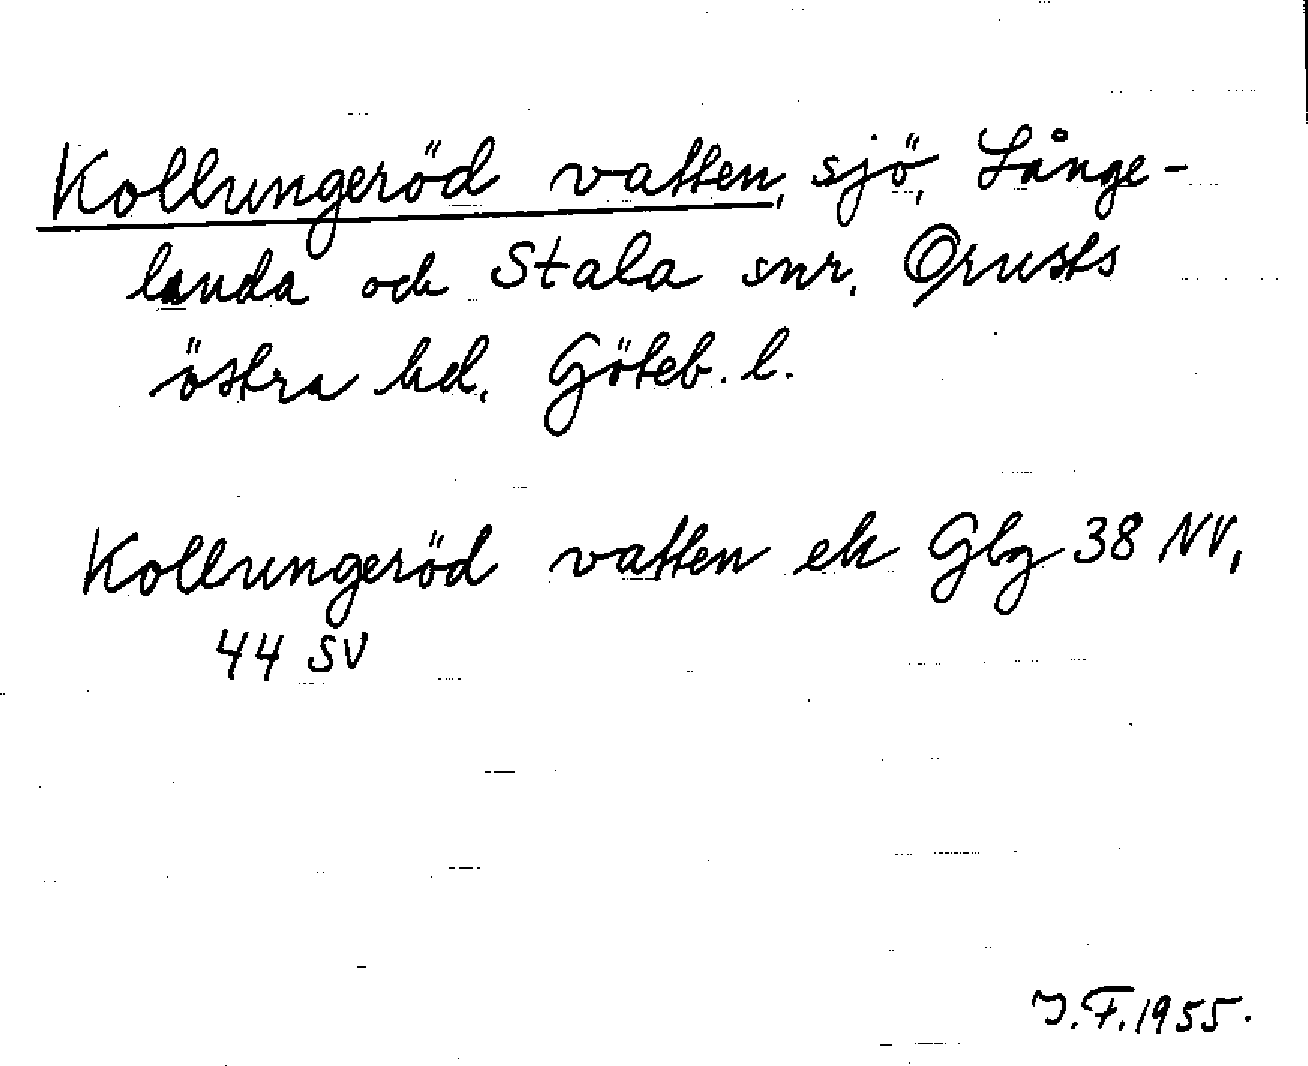 Kollungeröd vatten, sjö, Långe-
landa och Stala snr. Orusts
östra hd. Göteb. l.
Kollungeröd vatten ek Gbg 38 NV,
44 SV
J.F. 1955.